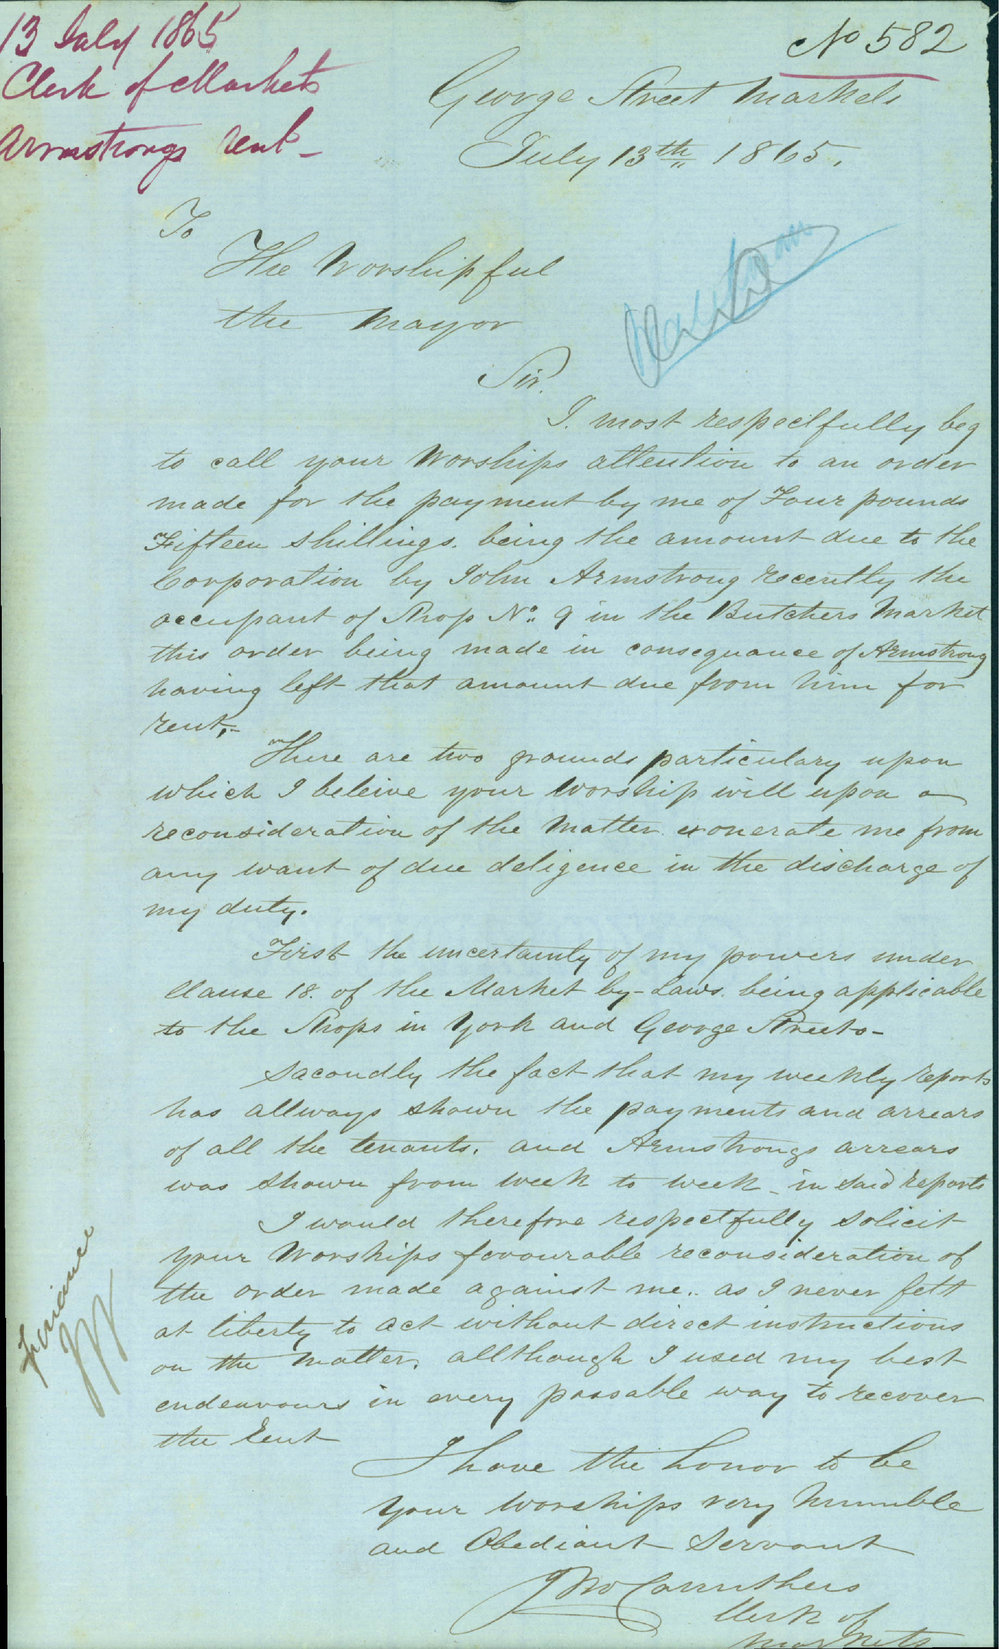 13 July 1865
Clerk of Markets
Armstrongs rent -
No 582
George Street Markets
July 13th 1865.
To
The Worshipful
the Mayor
Sir.
I. most respectfully beg
to call your Worships attention to an order
made for the payment by me of Four pounds
Fifteen shillings. being the amount due to the
Corporation by John Armstrong recently the
occupant of Shop No. 9 in the Butchers Market
this order being made in consequance of Armstrong
having left that amount due from him for
rent,-
There are two grounds particulary upon
which I beleive your Worship will upon a
reconsideration of the Matter exonerate me from
any want of due deligence in the discharge of
my duty.
First the uncertainty of my powers under
Clause 18. of the Market by-Laws. being applicable
to the Shops in York and George Streets-
Sacondly the fact that my weekly reports
has allways shown the payments and arrears
of all the tenants. and Armstrongs arrears
was shown from week to week - in said reports
I would therefore respectfully solicit
your Worships favourable reconsideration of
the order made against me. as I never felt
at liberty to act without direct instructions
on the Matter, allthough I used my best
endeavours in every possable way to recover
the Rent
I have the honor to be
Your Worships very humble
and Obediant Servant
Jno Carruthers
Clerk of
Markets
Finance